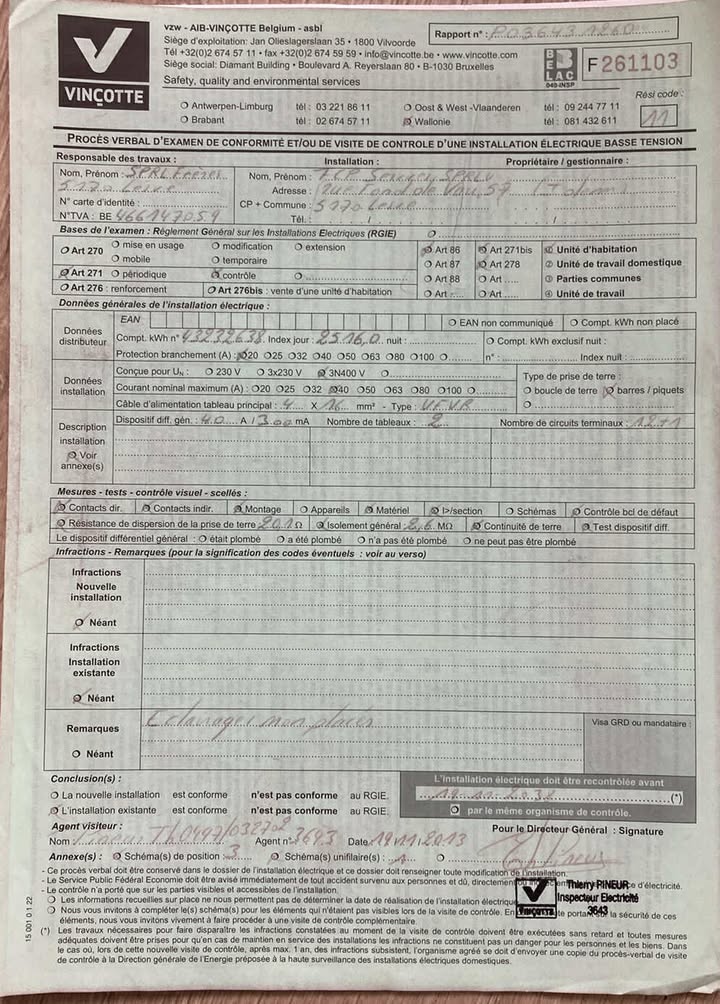 VINÇOTTE
vzw - AIB-VINÇOTTE Belgium - asbl
Siège d'exploitation: Jan Olieslagerslaan 35 • 1800 Vilvoorde
Tél +32(0)2 674 57 11 • fax +32(0)2 674 59 59 • info@vincotte.be • www.vincotte.com
Siège social: Diamant Building • Boulevard A. Reyerslaan 80 • B-1030 Bruxelles
Safety, quality and environmental services
Rapport n° :
BELAC
040-INSP
F 261103
Antwerpen-Limburg tél : 03 221 86 11 Oost & West -Vlaanderen tél : 09 244 77 11
Brabant tél : 02 674 57 11 Wallonie tél : 081 432 611
Rési code :
11
PROCÈS VERBAL D'EXAMEN DE CONFORMITÉ ET/OU DE VISITE DE CONTROLE D'UNE INSTALLATION ÉLECTRIQUE BASSE TENSION
Responsable des travaux : Installation : Propriétaire / gestionnaire :
Nom, Prénom : SPRL Nom, Prénom :
5170 Adresse :
N° carte d'identité : CP + Commune : 5170
N°TVA : BE 466147059 Tél. : / /
Bases de l'examen : Règlement Général sur les Installations Electriques (RGIE)
Art 270 mise en usage modification extension Art 86 Art 271bis Unité d'habitation
mobile temporaire Art 87 Art 278 Unité de travail domestique
Art 271 périodique contrôle Art 88 Art Parties communes
Art 276 : renforcement Art 276bis : vente d'une unité d'habitation Art Art Unité de travail
Données générales de l'installation électrique :
Données distributeur
EAN EAN non communiqué Compt. kWh non placé
Compt. kWh n° 43232638 Index jour : 2516,0 nuit : Compt. kWh exclusif nuit :
Protection branchement (A) : 20 25 32 40 50 63 80 100 n° : Index nuit :
Données installation
Conçue pour UN : 230 V 3x230 V 3N400 V Type de prise de terre :
Courant nominal maximum (A) : 20 25 32 40 50 63 80 100 boucle de terre barres / piquets
Câble d'alimentation tableau principal : 4 X 16 mm² - Type : VFVB
Description installation
Voir annexe(s)
Dispositif diff. gén. 40 A / 300 mA Nombre de tableaux : 2 Nombre de circuits terminaux : 12+1
Mesures - tests - contrôle visuel - scellés :
Contacts dir. Contacts indir. Montage Appareils Matériel I>/section Schémas Contrôle bcl de défaut
Résistance de dispersion de la prise de terre 20,1 Ω Isolement général 2,6 MΩ Continuité de terre Test dispositif diff.
Le dispositif différentiel général : était plombé a été plombé n'a pas été plombé ne peut pas être plombé
Infractions - Remarques (pour la signification des codes éventuels : voir au verso)
Infractions
Nouvelle
installation
Néant
Infractions
Installation
existante
Néant
Remarques Eclairages non placés Visa GRD ou mandataire :
Néant
Conclusion(s) :
La nouvelle installation est conforme n'est pas conforme au RGIE
L'installation existante est conforme n'est pas conforme au RGIE
L'installation électrique doit être recontrôlée avant
(*)
par le même organisme de contrôle.
Agent visiteur :
Nom Agent n° 3643 Date 19.11.2013 Pour le Directeur Général : Signature
Annexe(s) : Schéma(s) de position 3 Schéma(s) unifilaire(s) : 1
- Ce procès verbal doit être conservé dans le dossier de l'installation électrique et ce dossier doit renseigner toute modification de l'installation.
- Le Service Public Fédéral Economie doit être avisé immédiatement de tout accident survenu aux personnes et dû, directement ou d'électricité.
- Le contrôle n'a porté que sur les parties visibles et accessibles de l'installation.
Les informations recueillies sur place ne nous permettent pas de déterminer la date de réalisation de l'installation électrique
Nous vous invitons à compléter le(s) schéma(s) pour les éléments qui n'étaient pas visibles lors de la visite de contrôle. la sécurité de ces
éléments, nous vous invitons vivement à faire procéder à une visite de contrôle complémentaire.
Thierry PINEUR
Inspecteur Electricité
3643
VINÇOTTE
(*) Les travaux nécessaires pour faire disparaître les infractions constatées au moment de la visite de contrôle doivent être exécutées sans retard et toutes mesures
adéquates doivent être prises pour qu'en cas de maintien en service des installations les infractions ne constituent pas un danger pour les personnes et les biens. Dans
le cas où, lors de cette nouvelle visite de contrôle, après max. 1 an, des infractions subsistent, l'organisme agréé se doit d'envoyer une copie du procès-verbal de visite
de contrôle à la Direction générale de l'Energie préposée à la haute surveillance des installations électriques domestiques.
15 001 0 1 22